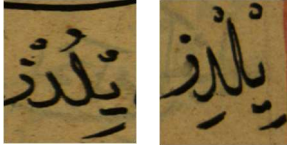 يِلْدُزْ
يِلْدِزْ